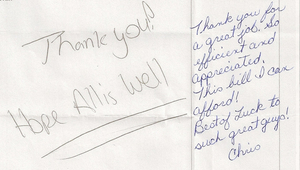 Thank you!
Hope All is Well
Thank you for
a great job, so
efficient and
appreciated.
This bill I can
afford!
Best of Luck to
such great guys!
Chris